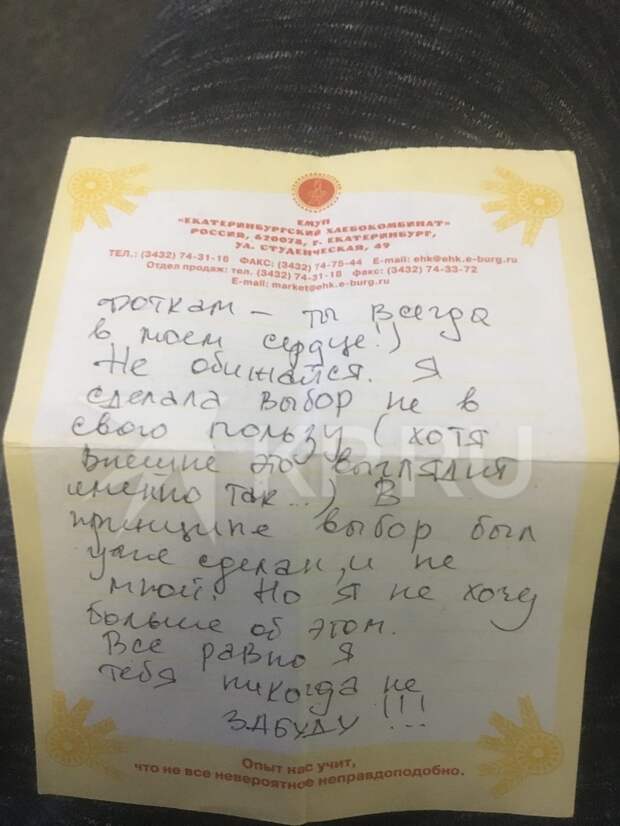 ЕМУП
«ЕКАТЕРИНБУРГСКИЙ ХЛЕБОКОМБИНАТ»
РОССИЯ, 620078, г. ЕКАТЕРИНБУРГ,
УЛ. СТУДЕНЧЕСКАЯ, 49
ТЕЛ.: (3432) 74-31-18 ФАКС: (3432) 74-75-44 E-mail: ehk@ehk.e-burg.ru
Отдел продаж: тел. (3432) 74-31-18 факс: (3432) 74-33-72
E-mail: market@ehk.e-burg.ru
фоткам – ты всегда
в моем сердце!)
Не обижайся. Я
сделала выбор не в
свою пользу (хотя
внешне это выглядит
именно так...) В
принципе выбор был
уже сделан, и не
мной. Но я не хочу
больше об этом.
Все равно я
тебя никогда не
ЗАБУДУ!!!...
KP.RU
Опыт нас учит,
что не все невероятное неправдоподобно.